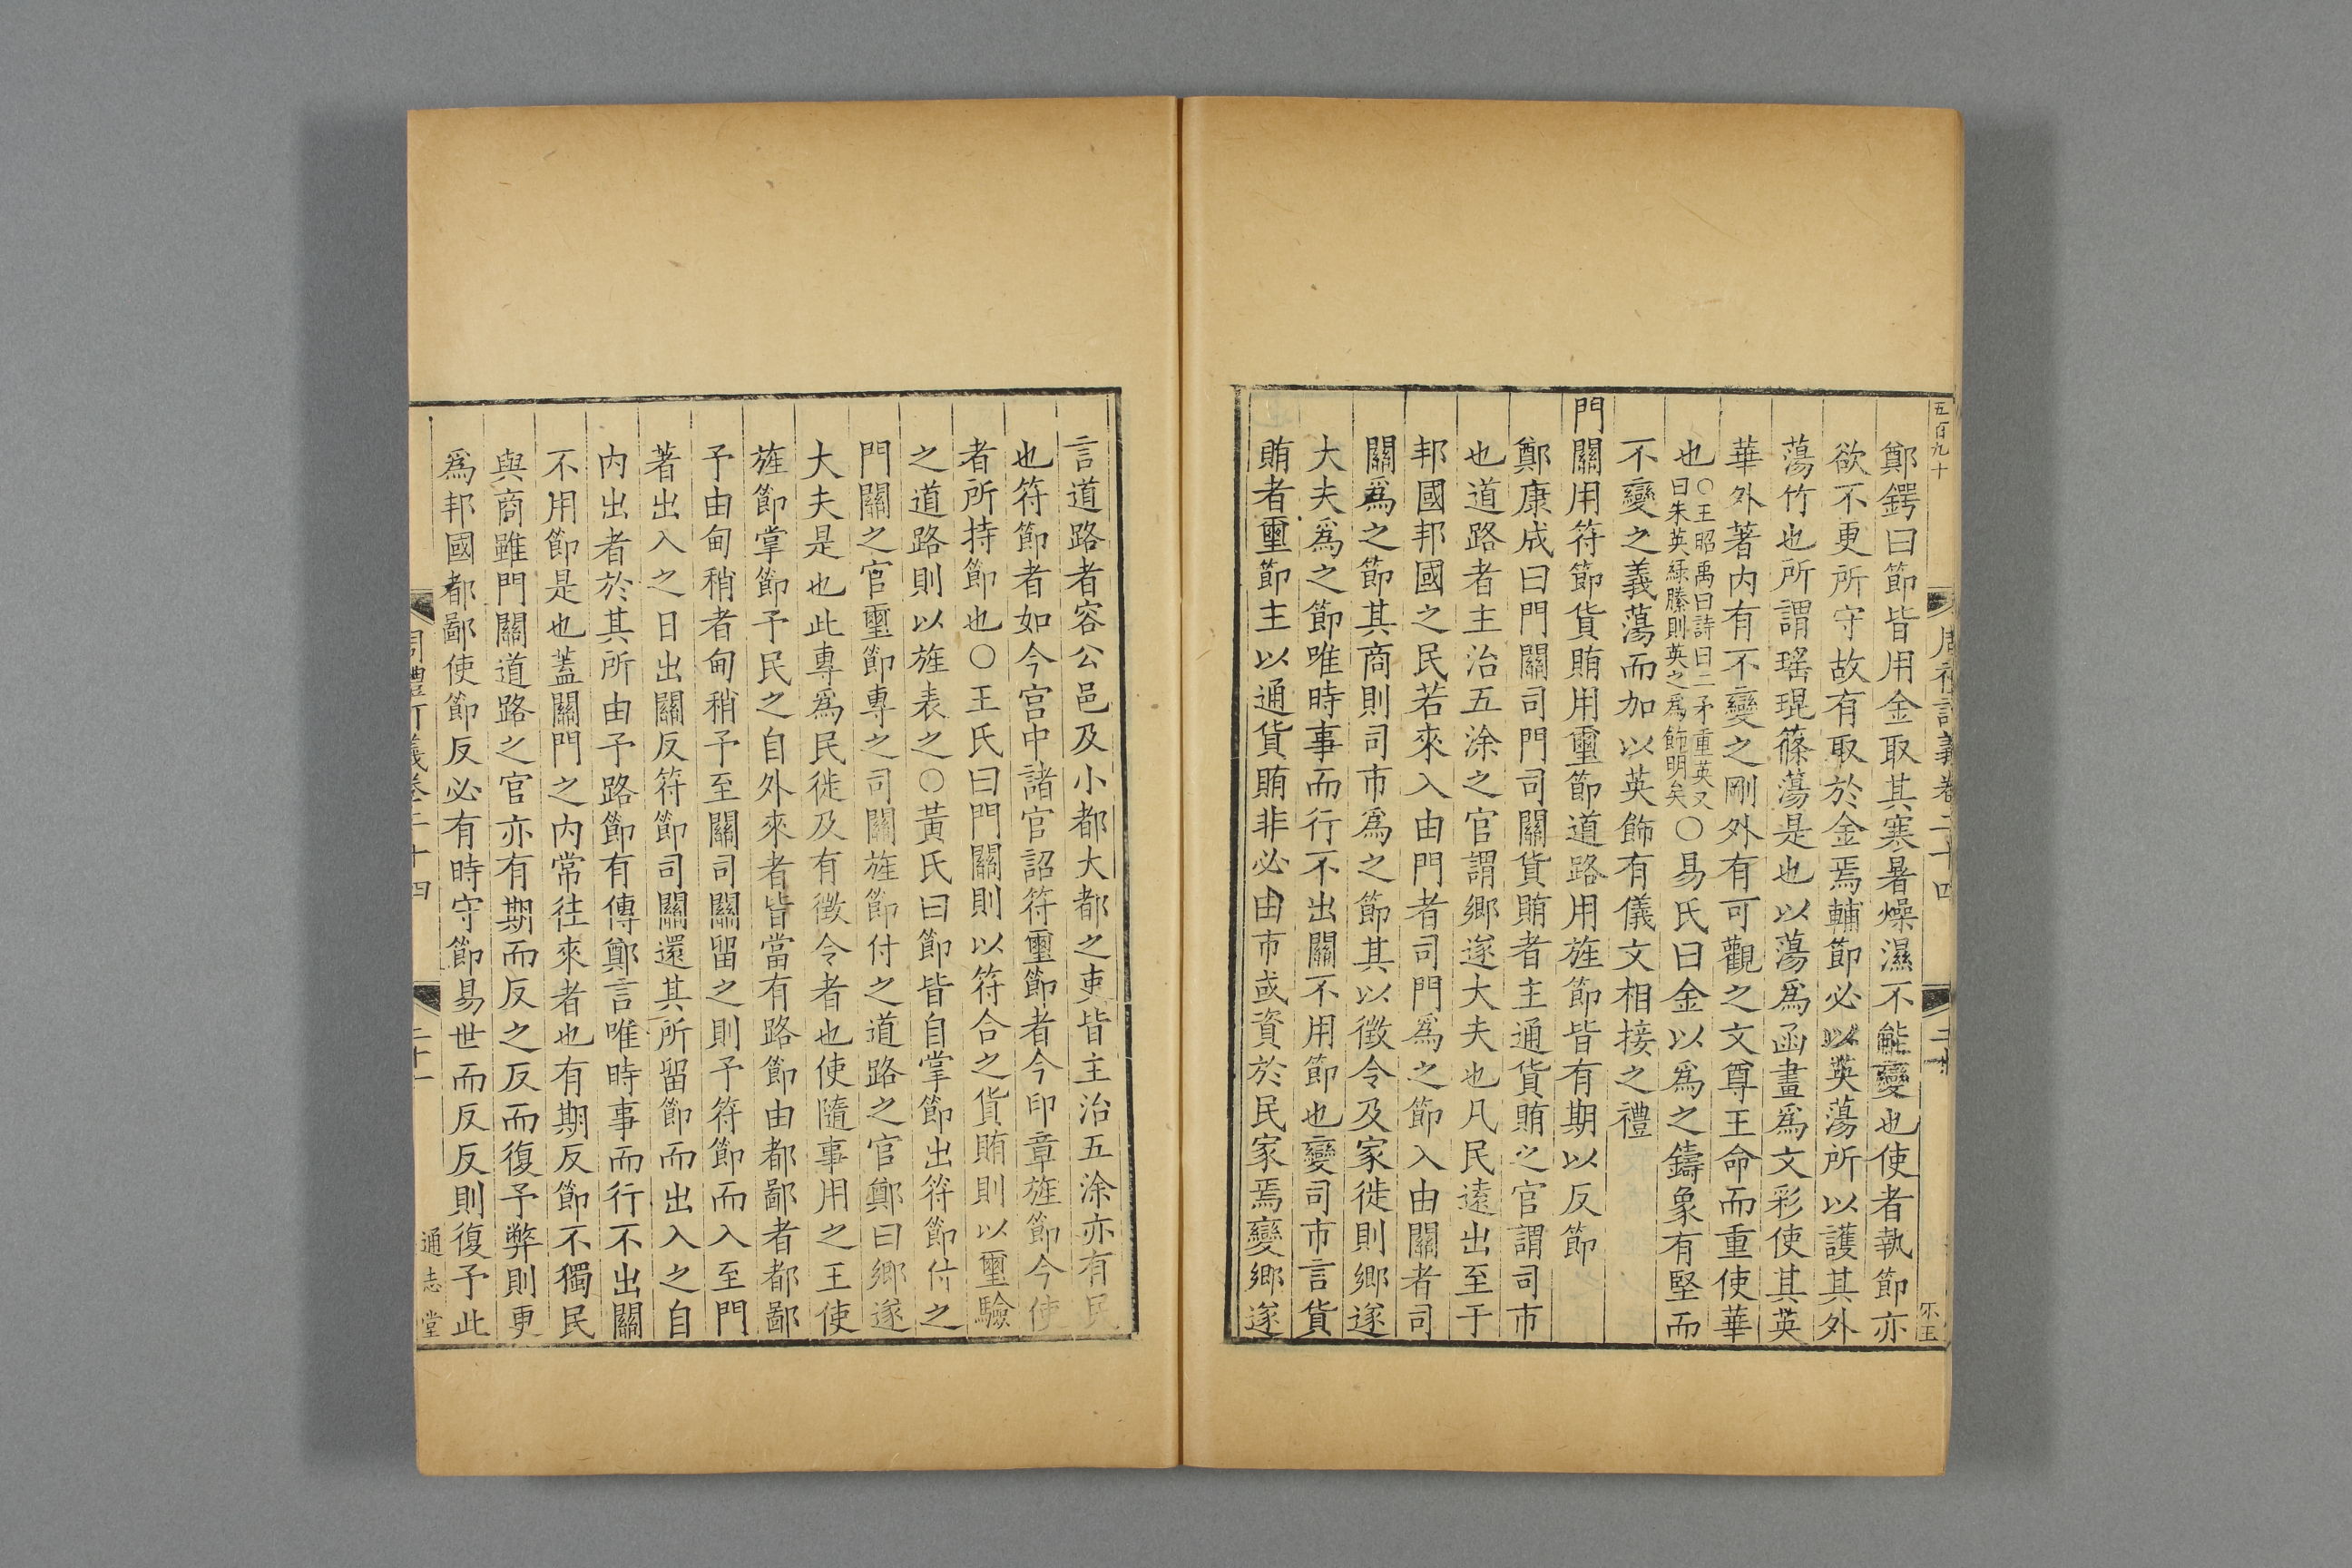 五百九十
周禮訂義卷二十四
鄭鍔曰節皆用金取其寒暑燥濕不能變也使者執節亦
欲不更所守故有取於金焉輔節必以英蕩所以護其外
蕩竹也所謂瑤琨篠蕩是也以蕩爲函畫爲文彩使其英
華外著內有不變之剛外有可觀之文尊王命而重使華
也○王昭禹曰詩曰二矛重英又曰朱英綠縢則英之爲飾明矣○易氏曰金以爲之鑄象有堅而
不變之義蕩而加以英飾有儀文相接之禮
門關用符節貨賄用璽節道路用旌節皆有期以反節
鄭康成曰門關司門司關貨賄者主通貨賄之官謂司市
也道路者主治五涂之官謂鄉遂大夫也凡民遠出至于
邦國邦國之民若來入由門者司門爲之節入由關者司
關爲之節其商則司市爲之節其以徵令及家徙則鄉遂
大夫爲之節唯時事而行不出關不用節也變司市言貨
賄者璽節主以通貨賄非必由市或資於民家焉變鄉遂
言道路者容公邑及小都大都之吏皆主治五涂亦有民
也符節者如今宮中諸官詔符璽節者今印章旌節今使
者所持節也○王氏曰門關則以符合之貨賄則以璽驗
之道路則以旌表之○黃氏曰節皆自掌節出符節付之
門關之官璽節專之司關旌節付之道路之官鄭曰鄉遂
大夫是也此專爲民徙及有徵令者也使隨事用之王使
旌節掌節予民之自外來者皆當有路節由都鄙者都鄙
予由甸稍者甸稍予至關司關留之則予符節而入至門
著出入之日出關反符節司關還其所留節而出入之自
內出者於其所由予路節有傳鄭言唯時事而行不出關
不用節是也蓋關門之內常往來者也有期反節不獨民
與商雖門關道路之官亦有期而反之反而復予弊則更
爲邦國都鄙使節反必有時守節易世而反反則復予此
周禮訂義卷二十四
二十一
通志堂